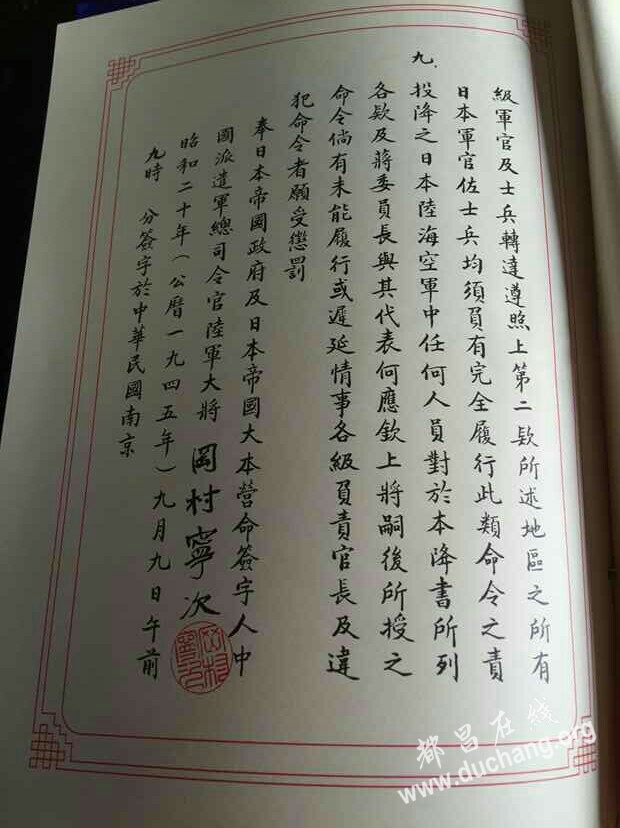 級軍官及士兵轉達遵照上第二欵所述地區之所有
日本軍官佐士兵均須負有完全履行此類命令之責
九.投降之日本陸海空軍中任何人員對於本降書所列
各欵及蔣委員長與其代表何應欽上將嗣後所授之
命令倘有未能履行或遲延情事各級負責官長及違
犯命令者願受懲罰
奉日本帝國政府及日本帝國大本營命簽字人中
國派遣軍總司令官陸軍大將 岡村寧次
昭和二十年(公曆一九四五年)九月九日午前
九時 分簽字於中華民國南京
都昌在线
www.duchang.org